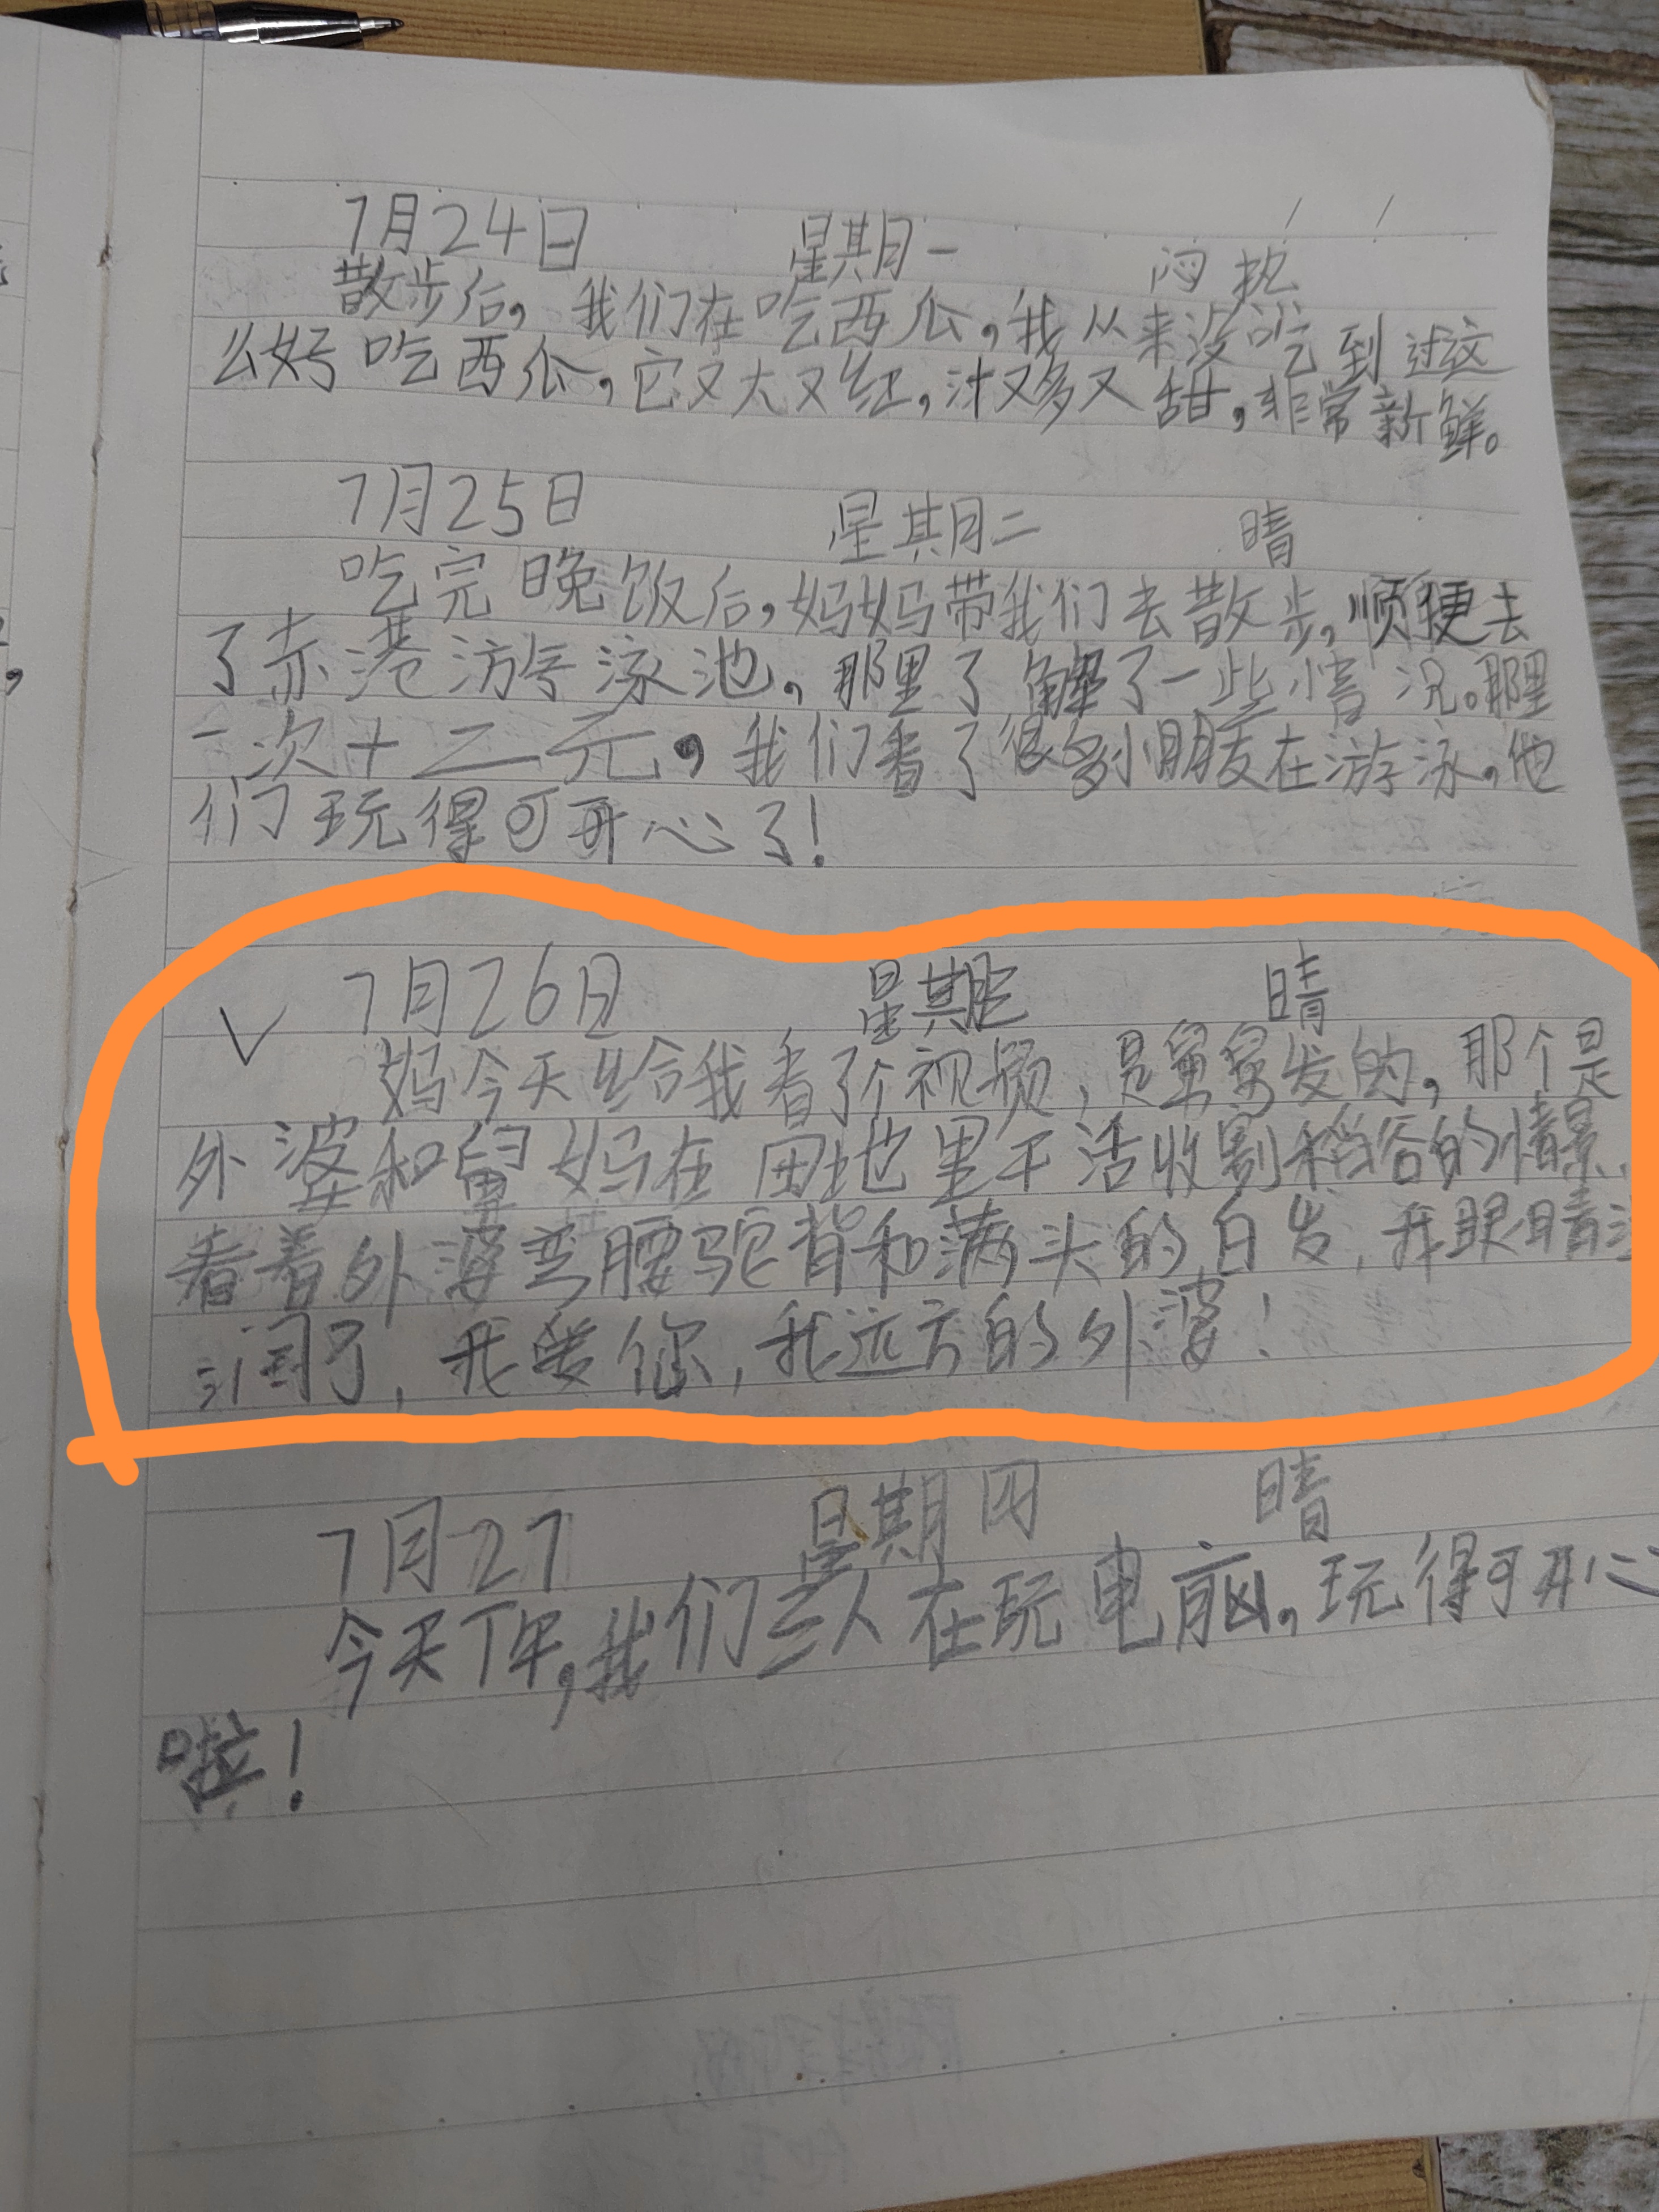 7月24日 星期一 闷热
散步后,我们在吃西瓜,我从来没吃到过这
么好吃西瓜,它又大又红,汁又多又甜,非常新鲜。
7月25日 星期二 晴
吃完晚饭后,妈妈带我们去散步,顺便去
了赤港游泳池,那里了解了一些情况。那里
一次十二元,我们看了很多小朋友在游泳,他
们玩得可开心了!
7月26日 星期 晴
妈今天给我看了个视频,是舅舅发的,那个是
外婆和舅妈在田地里干活收割稻谷的情景,
看着外婆弯腰驼背和满头的白发,我眼睛
润了,我爱您,我远方的外婆!
7月27 星期四 晴
今天下午,我们三人在玩电脑,玩得可开心
啦!